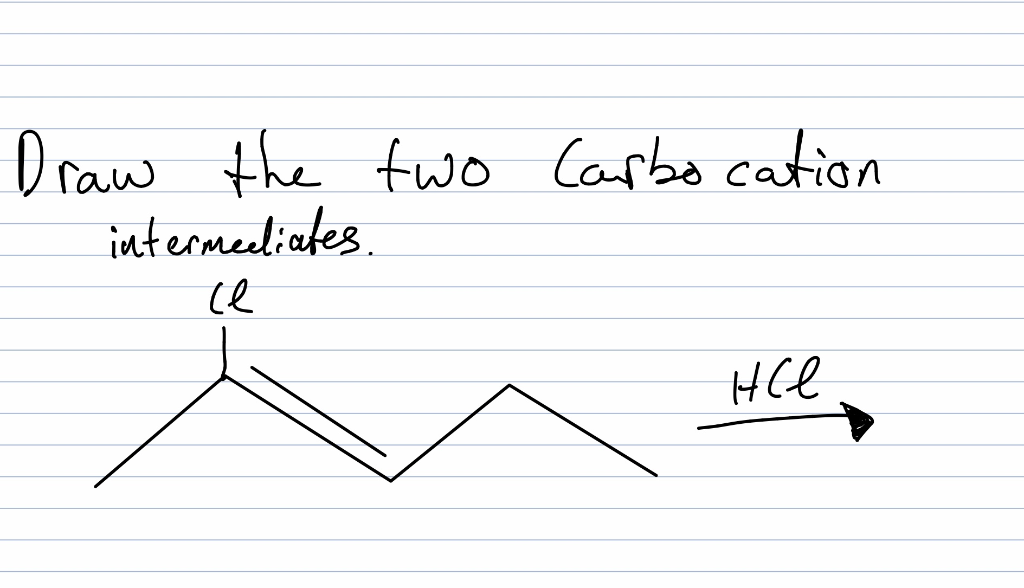 Draw the two Carbocation
intermediates.
Cl
HCl